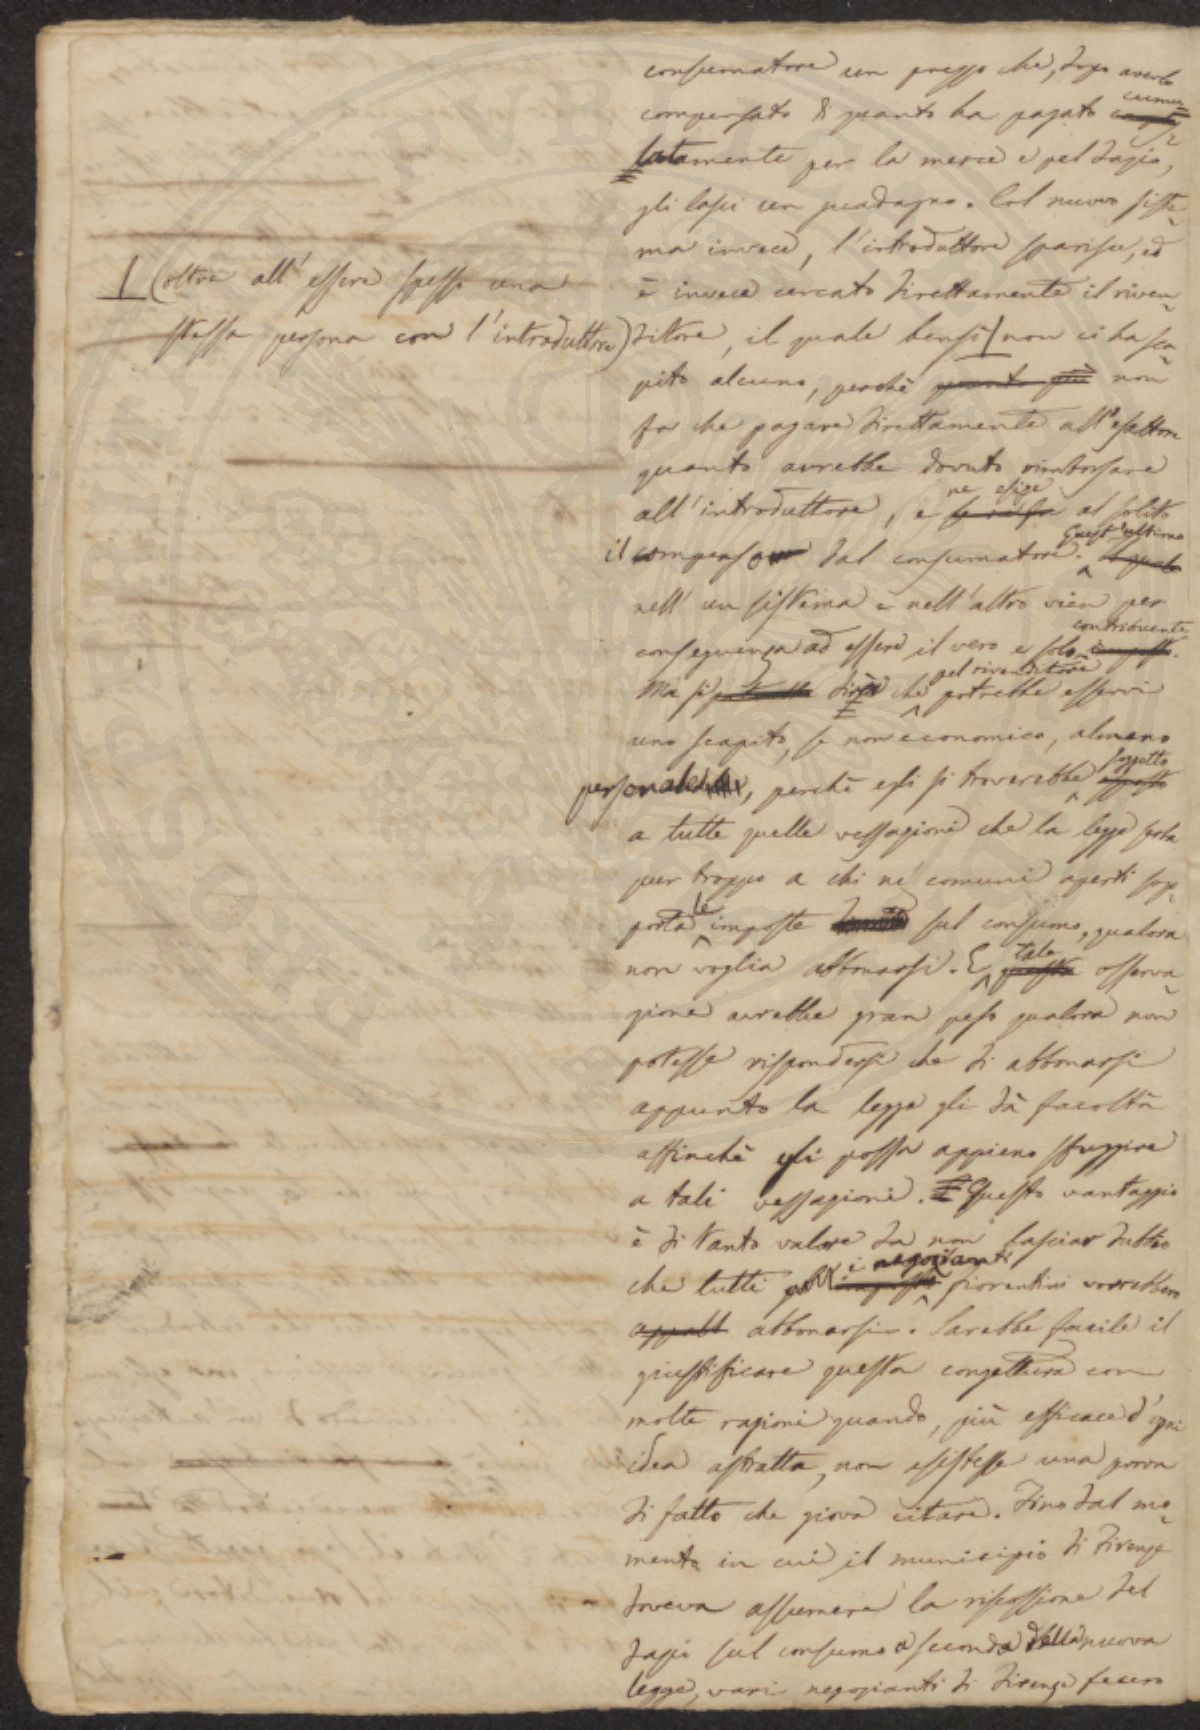 consumatore un prezzo che, dopo averlo
compensato di quanto ha pagato cumu=
latamente per la merce e pel dazio,
gli lasci un guadagno. Col nuovo siste=
ma invece, l'introduttore sparisce, ed
è invece cercato direttamente il riven=
ditore, il quale bensì | non ci ha sca=
| (oltre all'essere spesso una
stessa persona con l'introduttore)
pito alcuno, perchè quanto più non
fa che pagare direttamente all'esattore
quanto avrebbe dovuto rimborsare
all'introduttore, e ne esige al solito
il compenso dal consumatore. Quest'ultimo
nell'un sistema e nell'altro vien per
conseguenza ad essere il vero e solo contribuente.
Ma si dirà che pel rivenditore potrebbe esservi
uno scapito, se non economico, almeno
personale, perchè egli si troverebbe soggetto
a tutte quelle vessazioni che la legge porta
pur troppo a chi ne' comuni aperti sop=
porta le imposte sul consumo, qualora
non voglia abbonarsi. E tale questa osserva=
zione avrebbe gran peso qualora non
potesse rispondersi che di abbonarsi
appunto la legge gli dà facoltà
affinchè egli possa appieno sfuggire
a tali vessazioni. = Questo vantaggio
è di tanto valore da non lasciar dubbio
che tutti i negozianti fiorentini vorrebbero
appalt abbonarsi. Sarebbe facile il
giustificare questa congettura con
molte ragioni quando, più efficace d'ogni
idea astratta, non esistesse una prova
di fatto che giova citare. Fino dal mo=
mento in cui il municipio di Firenze
doveva assumere la riscossione del
dazio sul consumo a seconda della nuova
legge, vari negozianti di Firenze fecero